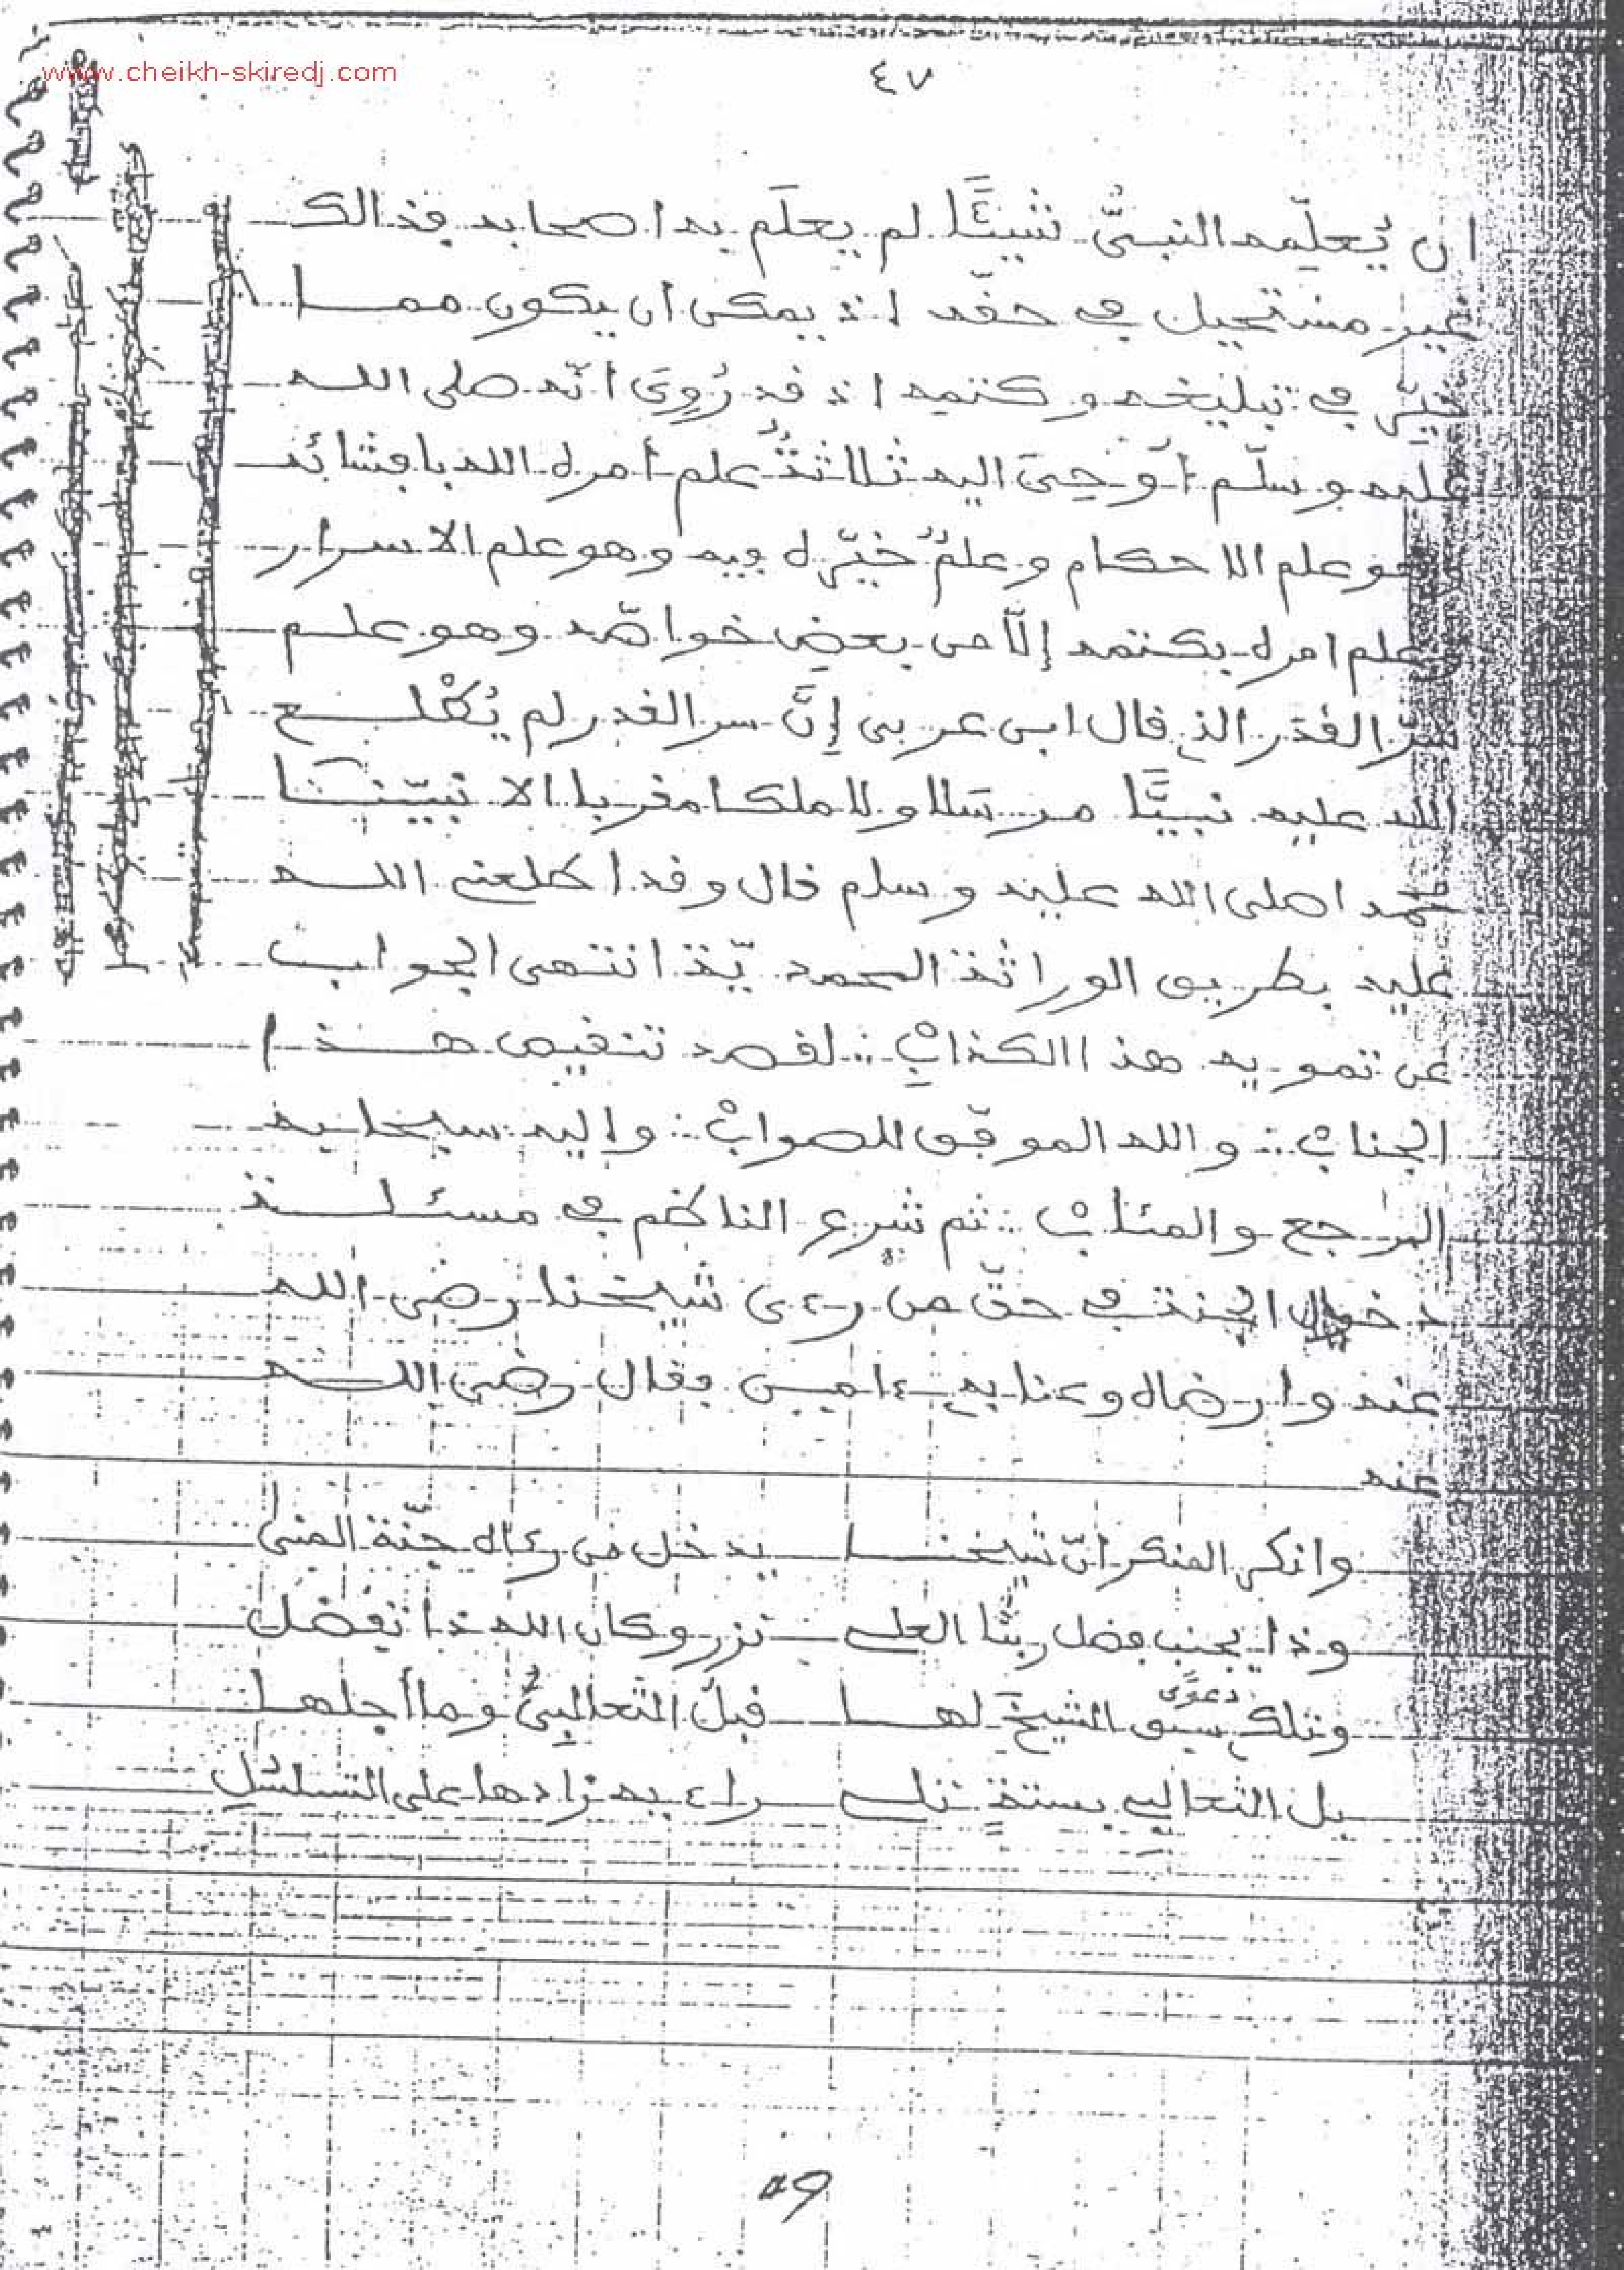 www.cheikh-skiredj.com
٤٧
ان يُعلِّمه النبيُّ شيئًا لم يعلَم به اصحابه فذالك
غير مستحيل في حقّه اذ يمكن ان يكون ممـا
خيِّر في تبليغه وكتمه اذ قد رُوِيَ أنّه صلى اللـه
عليه وسلّم أُوحِيَ اليه ثلاثةٌ علم أمره الله بافشائه
وهو علم الاحكام وعلمٌ خيّره فيه وهو علم الاسرار
وعلم امره بكتمه إلّا من بعض خواصّه وهو علـم
سرّ القدَر الذي قال ابن عربي إنَّ سر القدر لم يُطْلـع
الله عليه نبيًّا مرسَلا ولا ملكا مقربا الا نبيّنـا
محمدا صلى الله عليه وسلم قال وقد اطلعني اللـه
عليه بطريق الوراثة المحمديّة انتهى الجواب
عن تمويه هذا الكذابْ ∴ لقصد تنقيص هـذا
الجنابْ ∴ والله الموفّق للصوابْ ∴ واليه سبحانه
المرجع والمئابْ ∴ ثم شرع الناظم في مسئلـة
دخول الجنة في حقّ من رءى شيخنا رضي الله
عنه وارضاه وعنا به ءامين فقال رضي اللـه
عنه
وانكر المنكر انّ شيخنـا يدخل من رءاه جنّة المنى
وذا بجنب فضل ربّنا العلـي نزر وكان الله ذا تفضل
وتلك دعوًى سبق الشيخَ لهـا قبلُ الثعالبيُّ وما أجلهـا
بل الثعالبي بستةٍ تلـي راء به زادها على التسلسُلِ